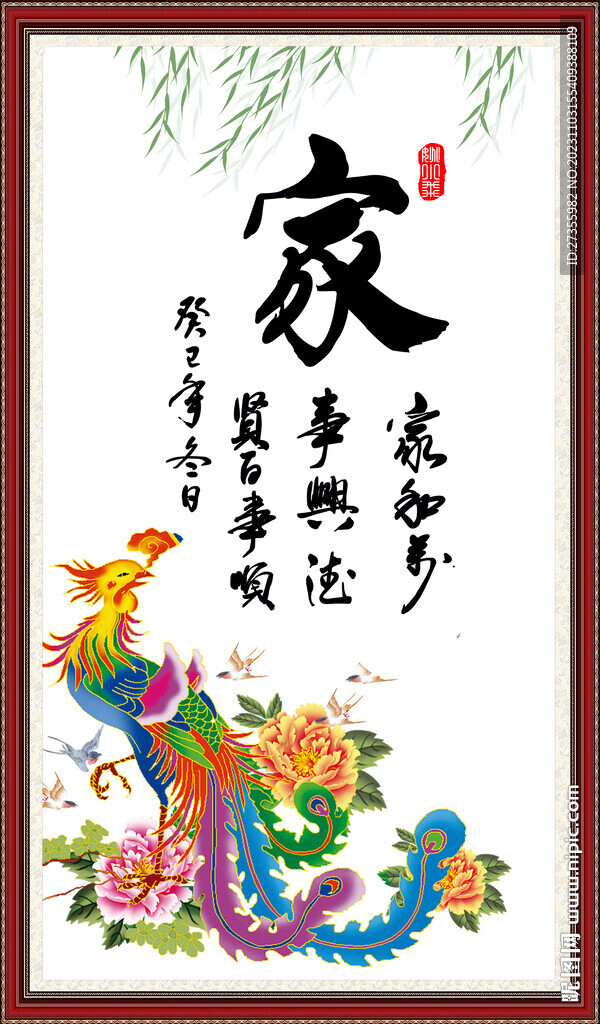 家
家和萬
事興德
賢百事順
癸巳年冬日
ID:27355982 NO.20231103155409388109
昵图网 www.nipic.com